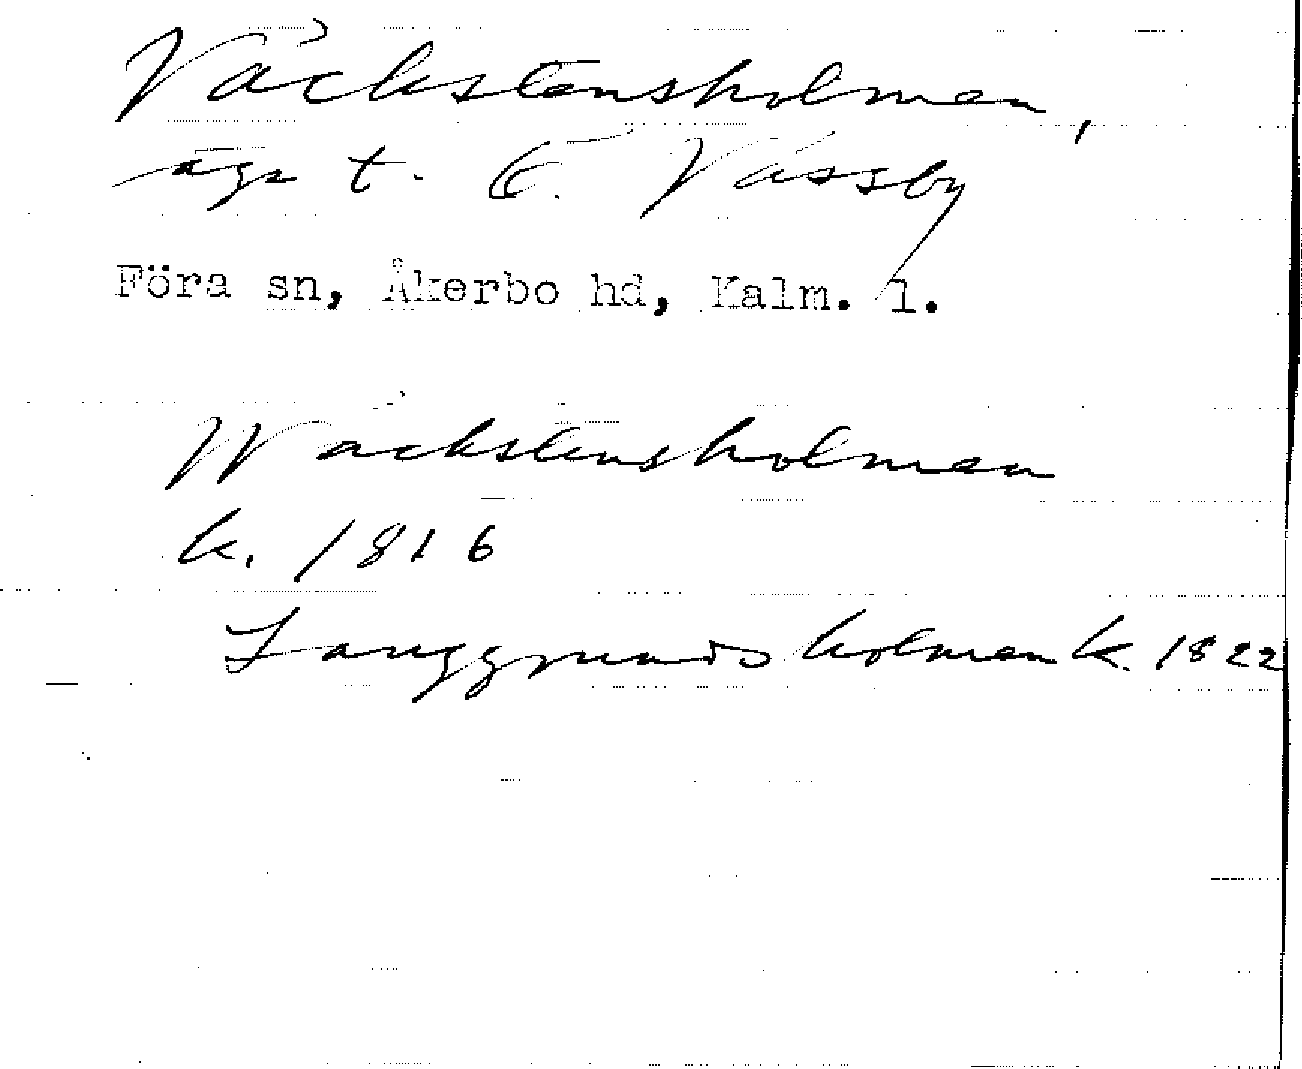 Väckstensholmen,
äga t. Ö. Vässby
Föra sn, Åkerbo hd, Kalm. l.
Wäckstensholmen
k. 1816
Langgrundsholmen k. 1822